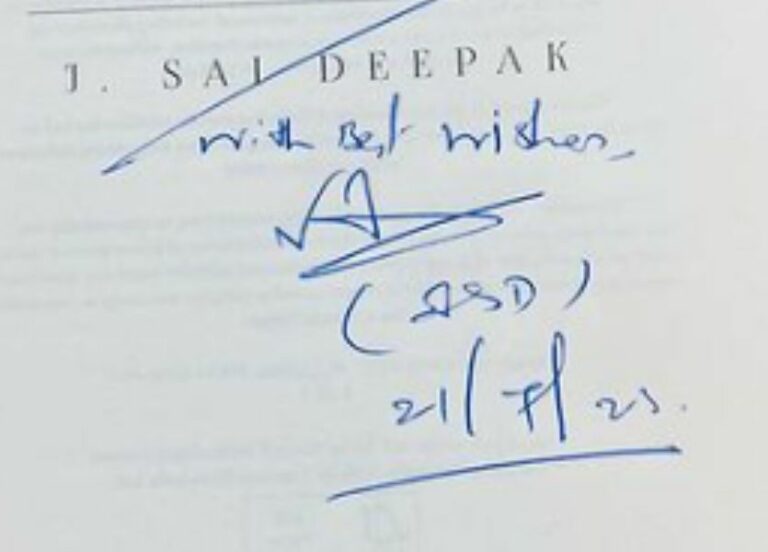 J. SAI DEEPAK
With Best wishes,
(JSD)
21/7/23.